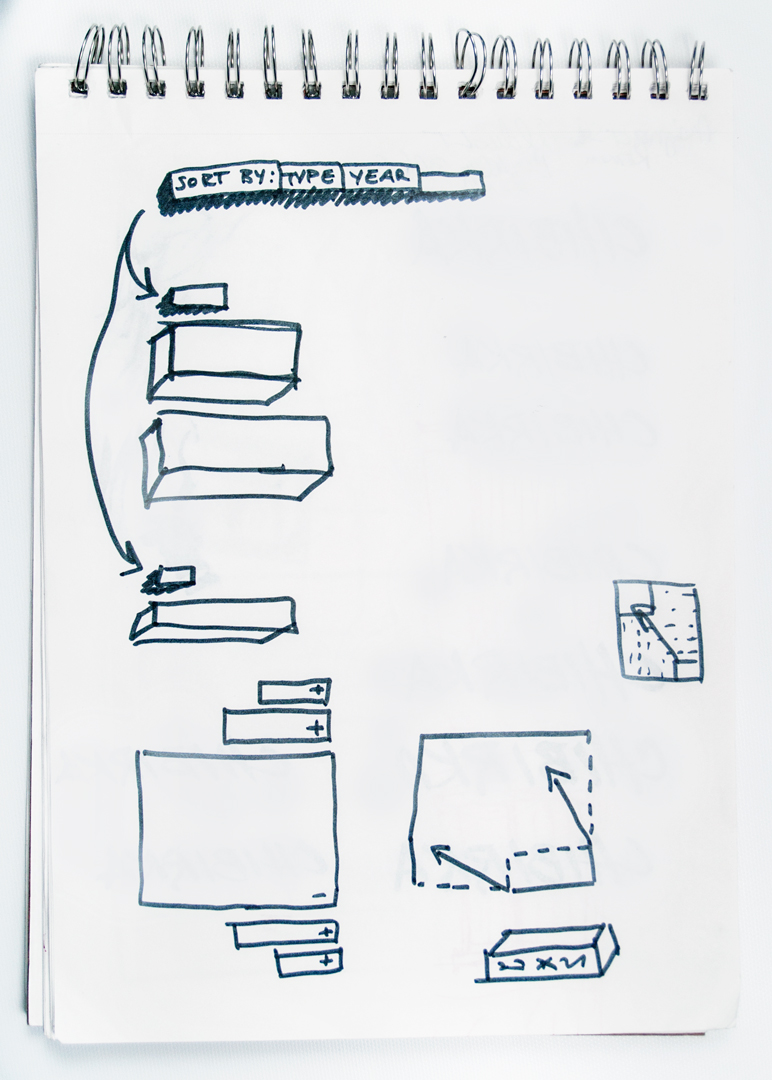 SORT BY: TYPE YEAR
+
+
-
+
+